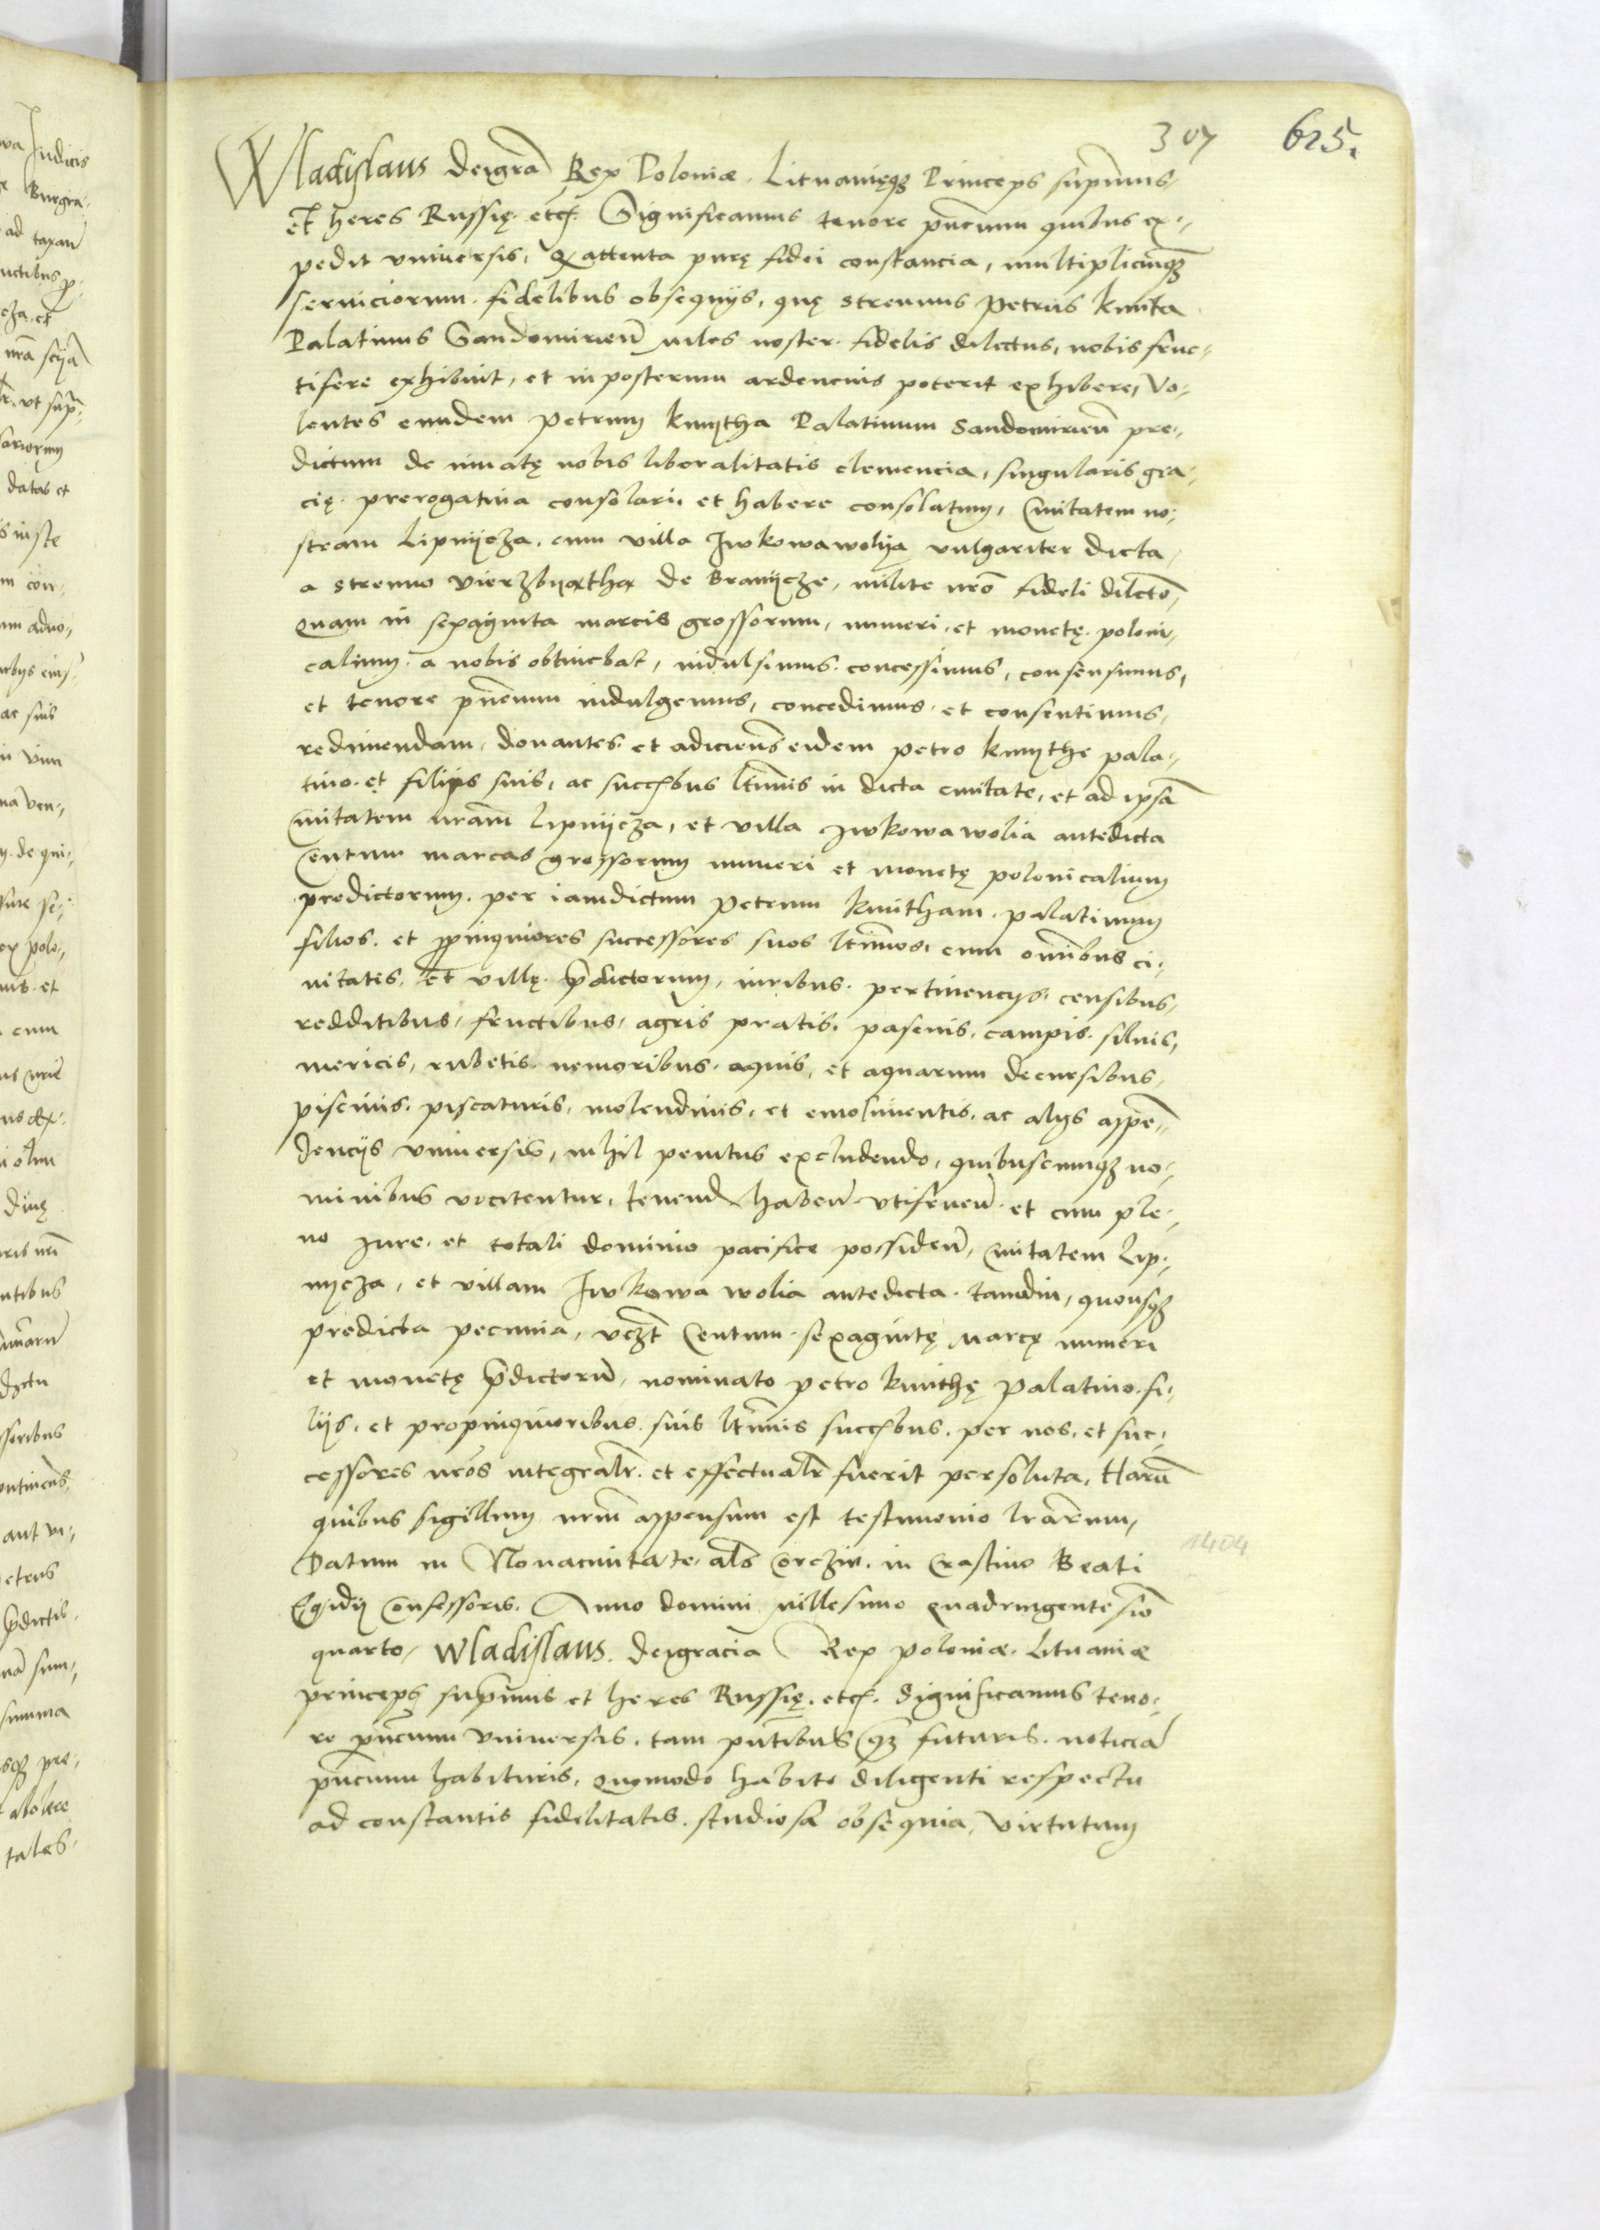 307 615.
Wladislaus Deigrã Rex Poloniæ. Lituanięqȝ Princeps supremus,
Et heres Russię. etc. Significamus tenore p̃ncium quibus ex-
pedit vniuersis, Q attenta purę fidei constancia, multipliciumqȝ
seruiciorum. fidelibus obsequijs, quę strenuus Petrus kmita
Palatinus Sandomirieñ miles noster. fidelis dilectus, nobis fruc-
tifere exhibuit, et in posterum ardencius poterit exhibere, Vo-
lentes eundem petrum kmytha Palatinum Sandomirieñ pre-
dictum de innatę nobis liberalitatis clemencia, singularis gra-
cię. prerogatiua consolari. et habere consolatum, Ciuitatem no-
stram Lipnijcza. cum villa Iwkowawolya vulgariter dicta,
a strenuo vierzbijatha de Branijcze, milite nr̃o fideli dilcto,
quam in sexaginta marcis grossorum, numeri. et monetę. poloni-
calium. a nobis obtinebat, indulsimus. concessimus, consensimus,
et tenore p̃ncium indulgemus, concedimus. et consentimus,
redimendam, donantes. et adiciens̃ eidem petro kmythe pala-
tino. et filijs suis, ac succ̃sbus lt̃imis in dicta ciuitate, et ad ipsã
Ciuitatem nrãm lipnijcza, et villa Iwkowa wolia antedicta
Centum marcas grossorum numeri et monetę polonicalium
predictorum. per iamdictum petrum kmitham. palatinum
filios. et propinquiores successores suos lt̃imos, cum om̃ibus ci-
uitatis, Et villę. p̃dictorum, iuribus. pertinencijs. censibus,
redditibus, fructibus, agris pratis, pascuis, campis. siluis,
mericis, rubetis. nemoribus. aquis, et aquarum decursibus,
piscinis. piscaturis, molendinis, et emolimentis. ac alijs appẽ-
dencijs vniuersis, nihil penitus excludendo, quibuscumqȝ no-
minibus vocitentur, tenend habeñ vtifrueñ. et cum ple-
no Iure. et totali dominio pacifice possideñ, Ciuitatem Lip-
nijcza, et villam Iwkowa wolia antedicta. tamdiu, quousqȝ
predicta pecunia, vczt Centum. sexagintę Marcę numeri
et monetę p̃dictorũ, nominato petro kmithę palatino. fi-
lijs, et propinquioribus. suis lt̃imis succ̃sbus. per nos. et suc-
cessores nr̃os integralr̃. et effectualr̃ fuerit persoluta. Harũ
quibus sigillum nrm̃ appensum est testimonio lrãrum,
Datum in Nouaciuitate, als̃ Corczin. in Crastino Beati
1404
Egidij Confessoris. Anno domini millesimo quadringentesiõ
quarto, Wladislaus. Deigracia Rex poloniæ. Lituaniæ
princeps sup̃mus et heres Russię. etc. Significamus teno-
re p̃ncium Vniuersis. tam p̃ntibus qȝ futuris. noticiã
p̃ncium habituris, quomodo habito diligenti respectu
ad constantis fidelitatis. studiosa obsequia, virtutum